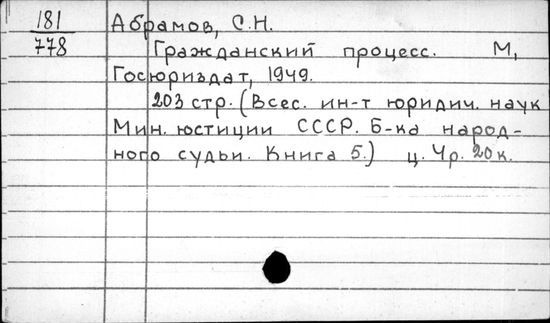 181
778
Абрамов, С.Н.
Гражданский процесс. М,
Госюриздат, 1949.
203 стр. (Всес. ин-т юридич. наук
Мин. юстиции СССР. Б-ка народ-
ного судьи. Книга 5.) ц. 4р. 20к.